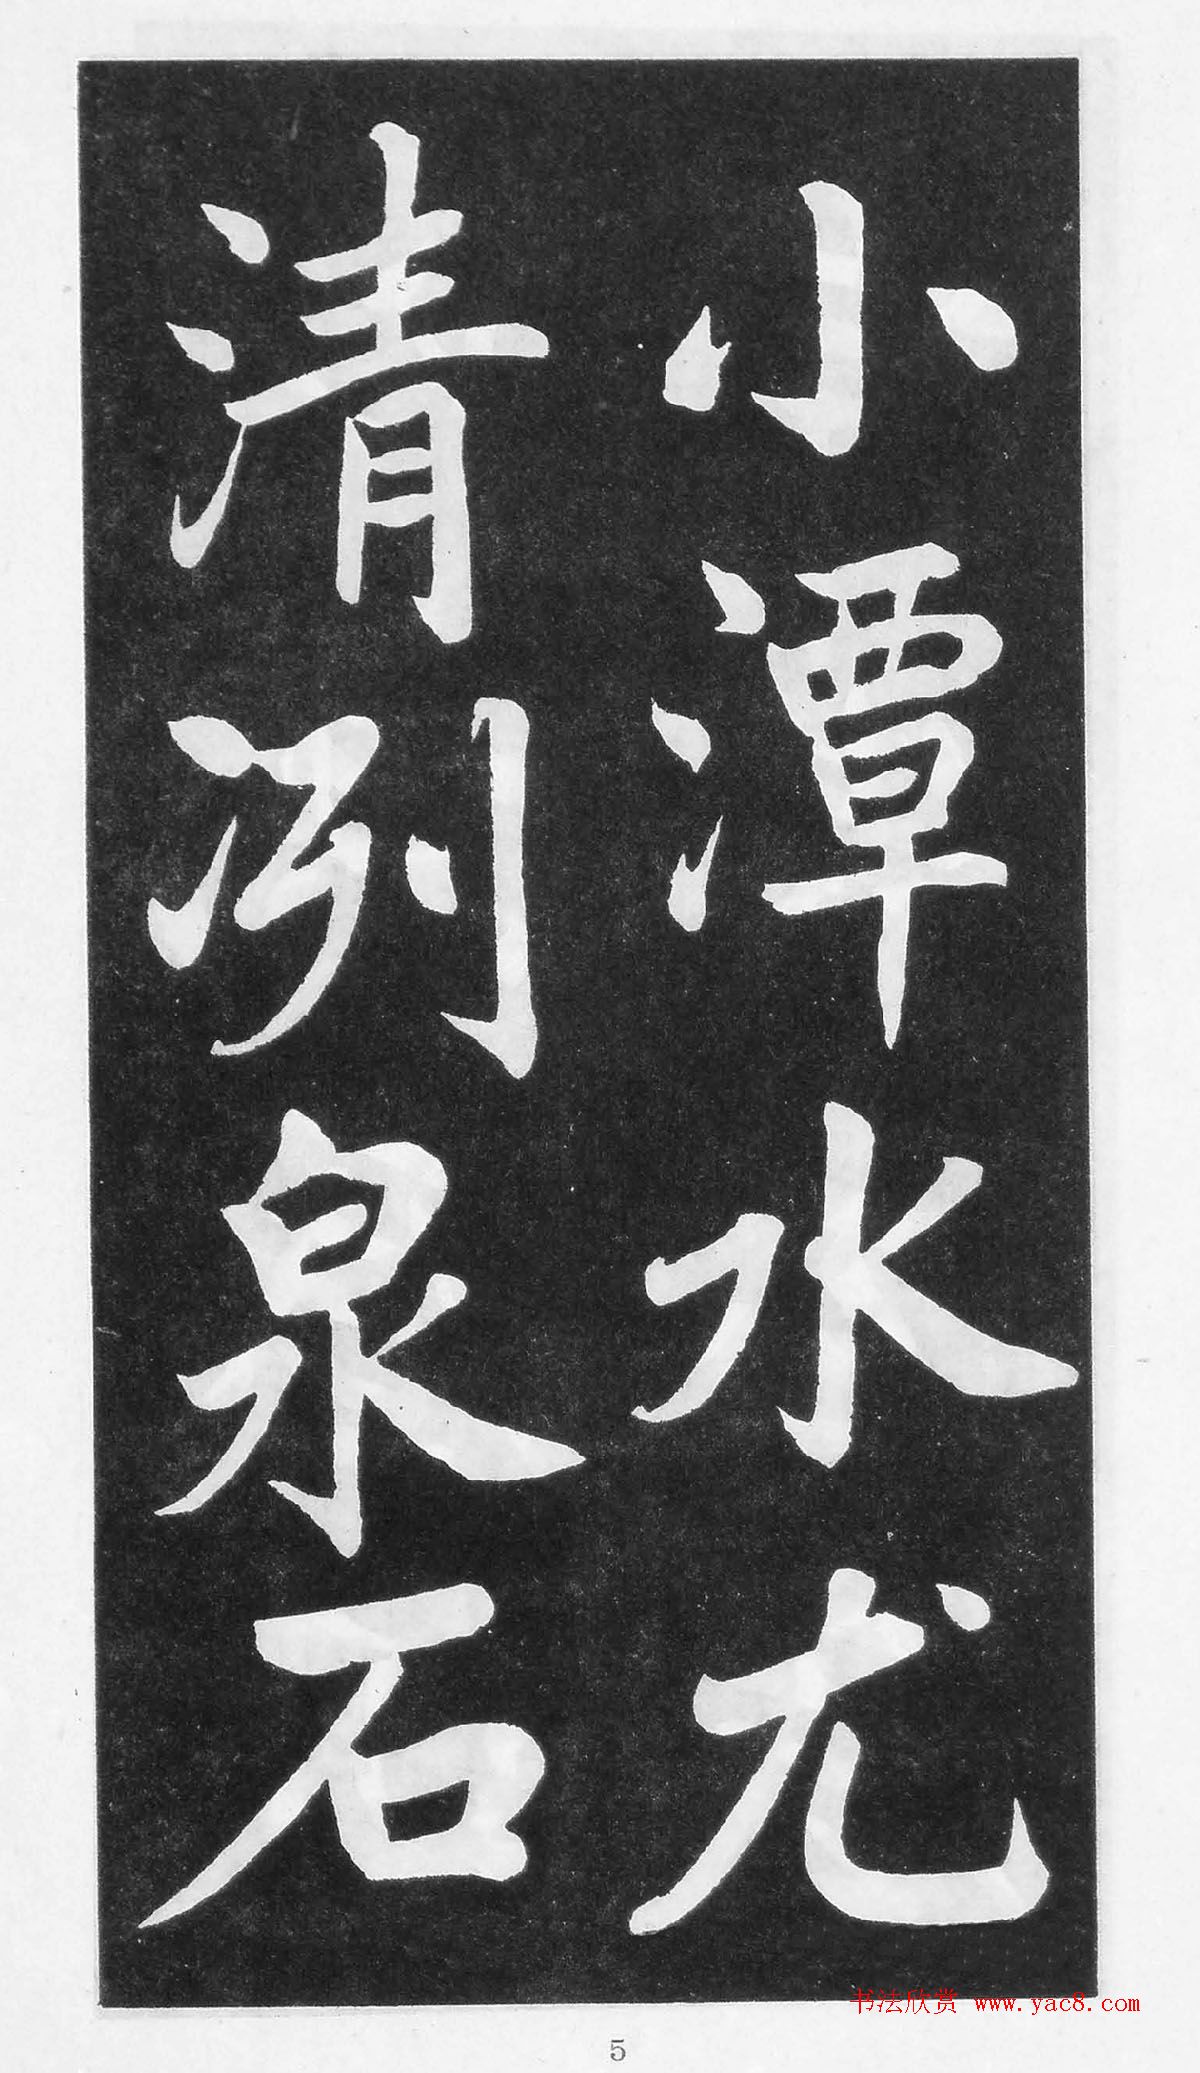 小潭水尤
清冽泉石
书法欣赏 www.yac8.com
5